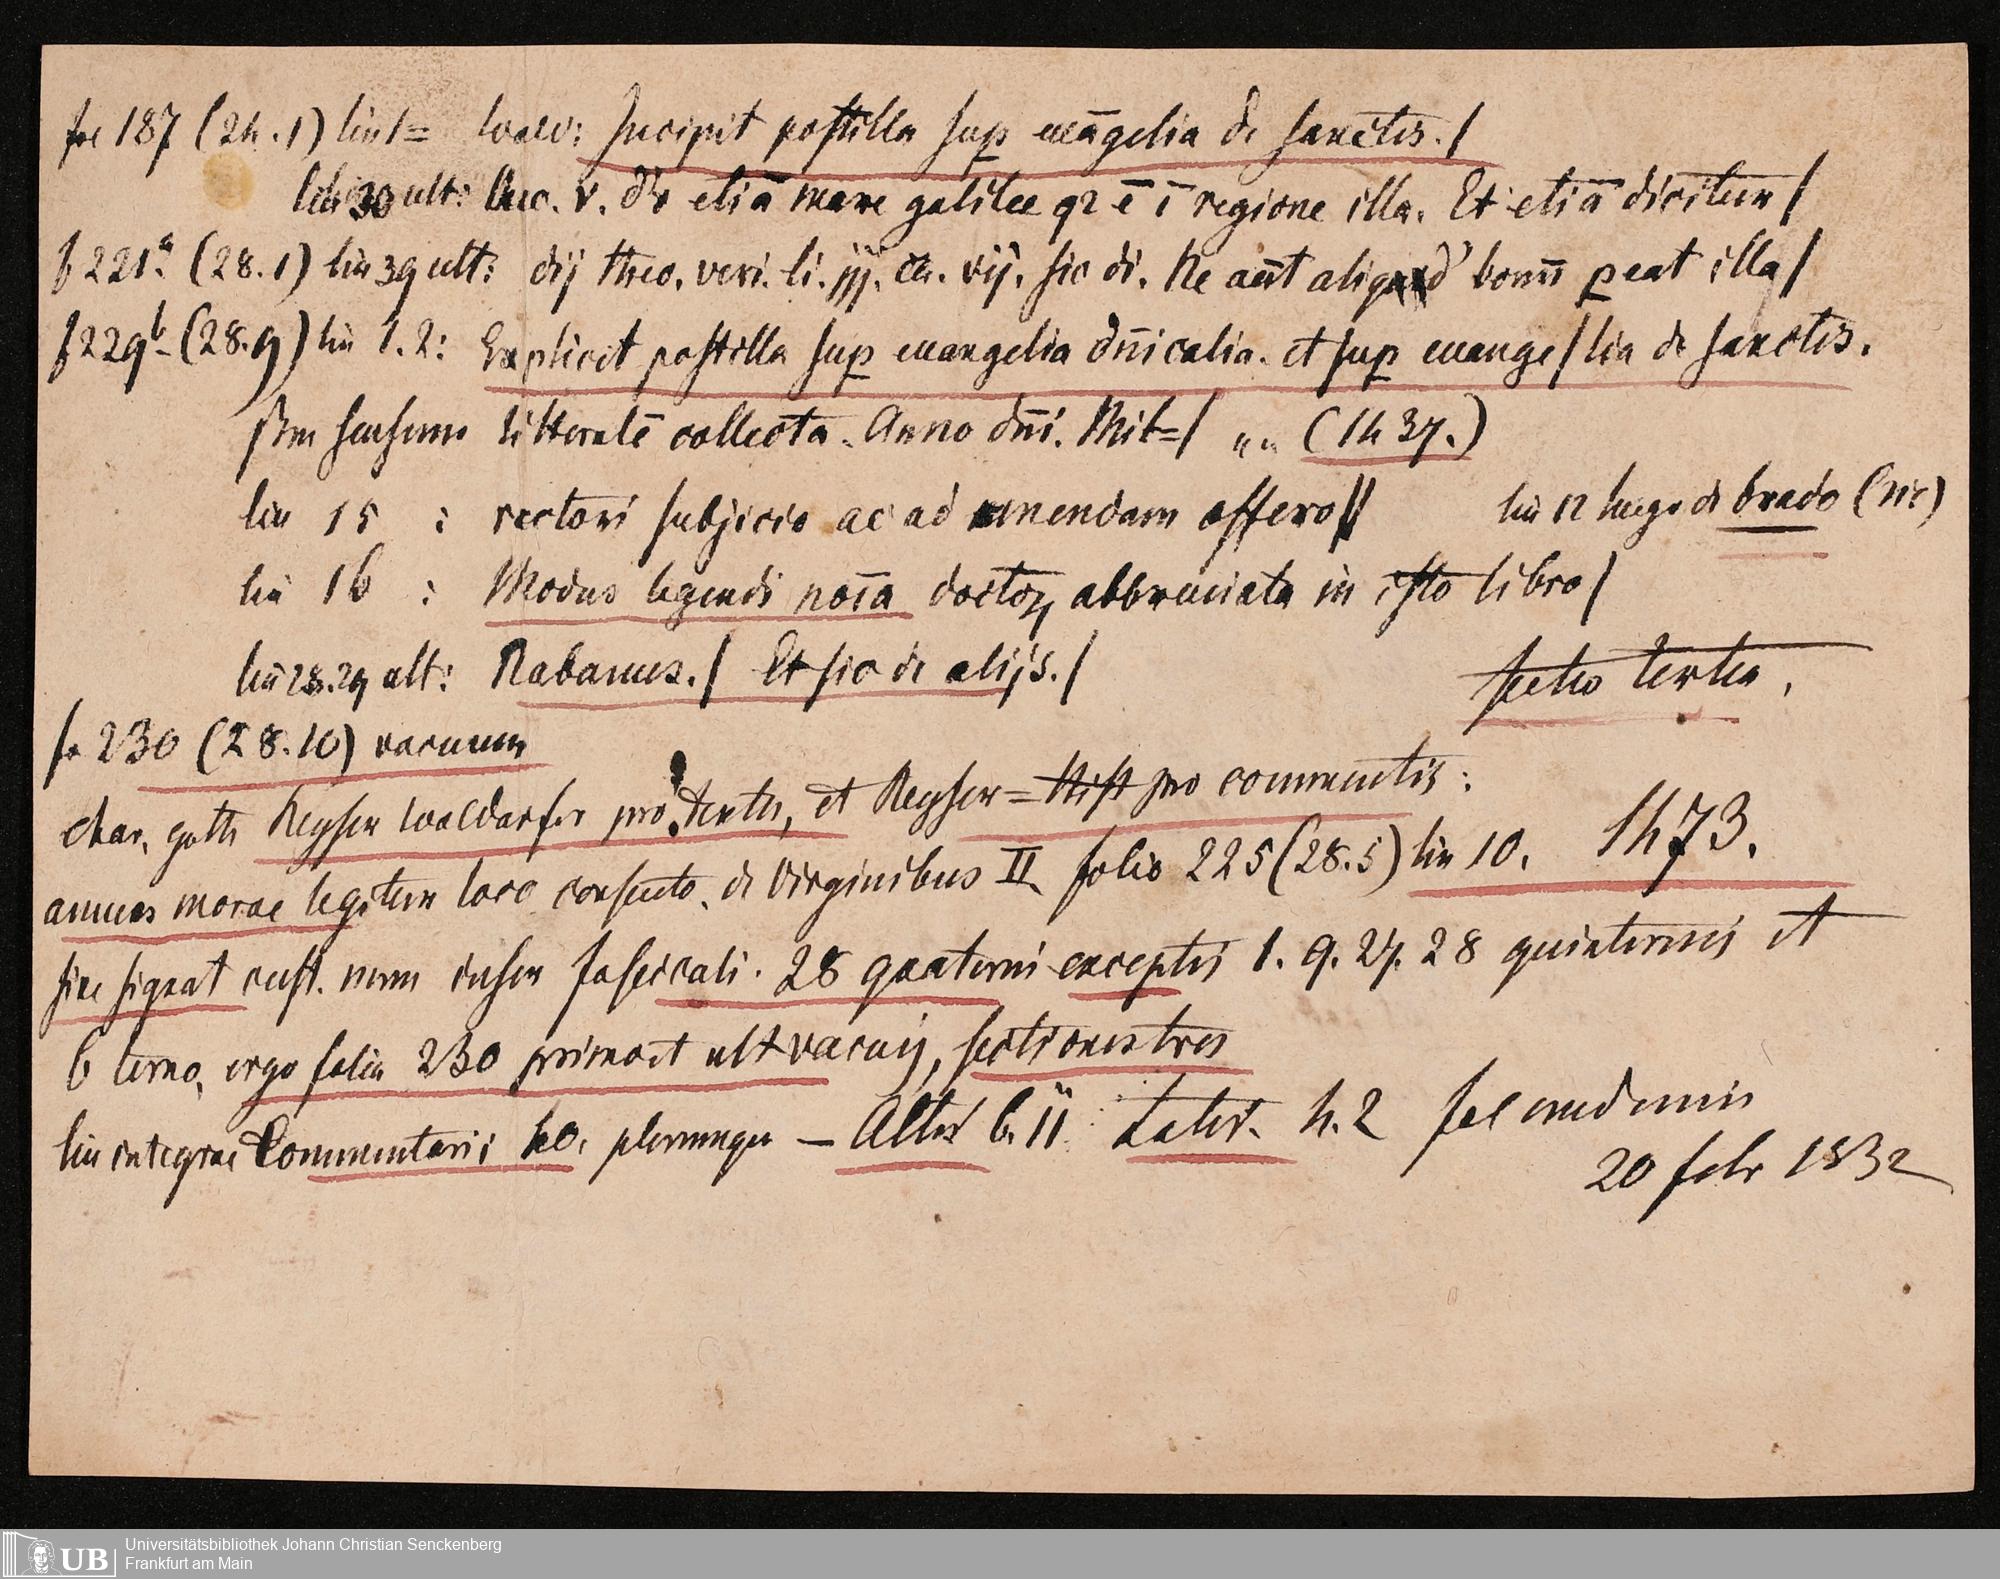 fol 187 (24.1) lin 1= wald: Incipit postilla sup euāgelia de sanctis./
lin 30 ult: Luc. v. dr̄ etiā mare galilee q2 ē ī regione illa. Et etiā dicitur/
f 221ᵃ. (28.1) lin 39 ult: dij theo. veri. li. iij. ca. vij. sic di. Ne aūt aliquod bonū peat illa/
f 229ᵇ (28.9) lin 1.2: Explicit postilla sup euangelia dn̄icalia. et sup euange/lia de sanctis.
sensum litteralē collecta. Anno dn̄i. Mil=/ „„ (1437.)
lin 15 : rectori subjicio ac ad emendam offero// lin 12 hugo de brado (sic)
lin 16 : Modus legendi noīa doctoꝝ abbreuiata in isto libro/
lin 28.29 ult: Rabanus./ Et sic de alijs./ sectio tertia.
fo 230 (28.10) vacuum
char. goth Reyser waldarfer pro textu, et Reyser= Hist pro commentis:
annus morae legitur loco consueto. de Virginibus II folio 225 (28.5) lin 10. 1473.
sine signat cust. num inser fascicali. 28 quaterni exceptis 1. 9. 27. 28 quinternis et
6 terno, ergo folia 230 primo et ult vacuij, sectiones tres
lin integrae Commentarii 40. plerumque — Altit 6.11 Latit. 4.2
20 febr 1832